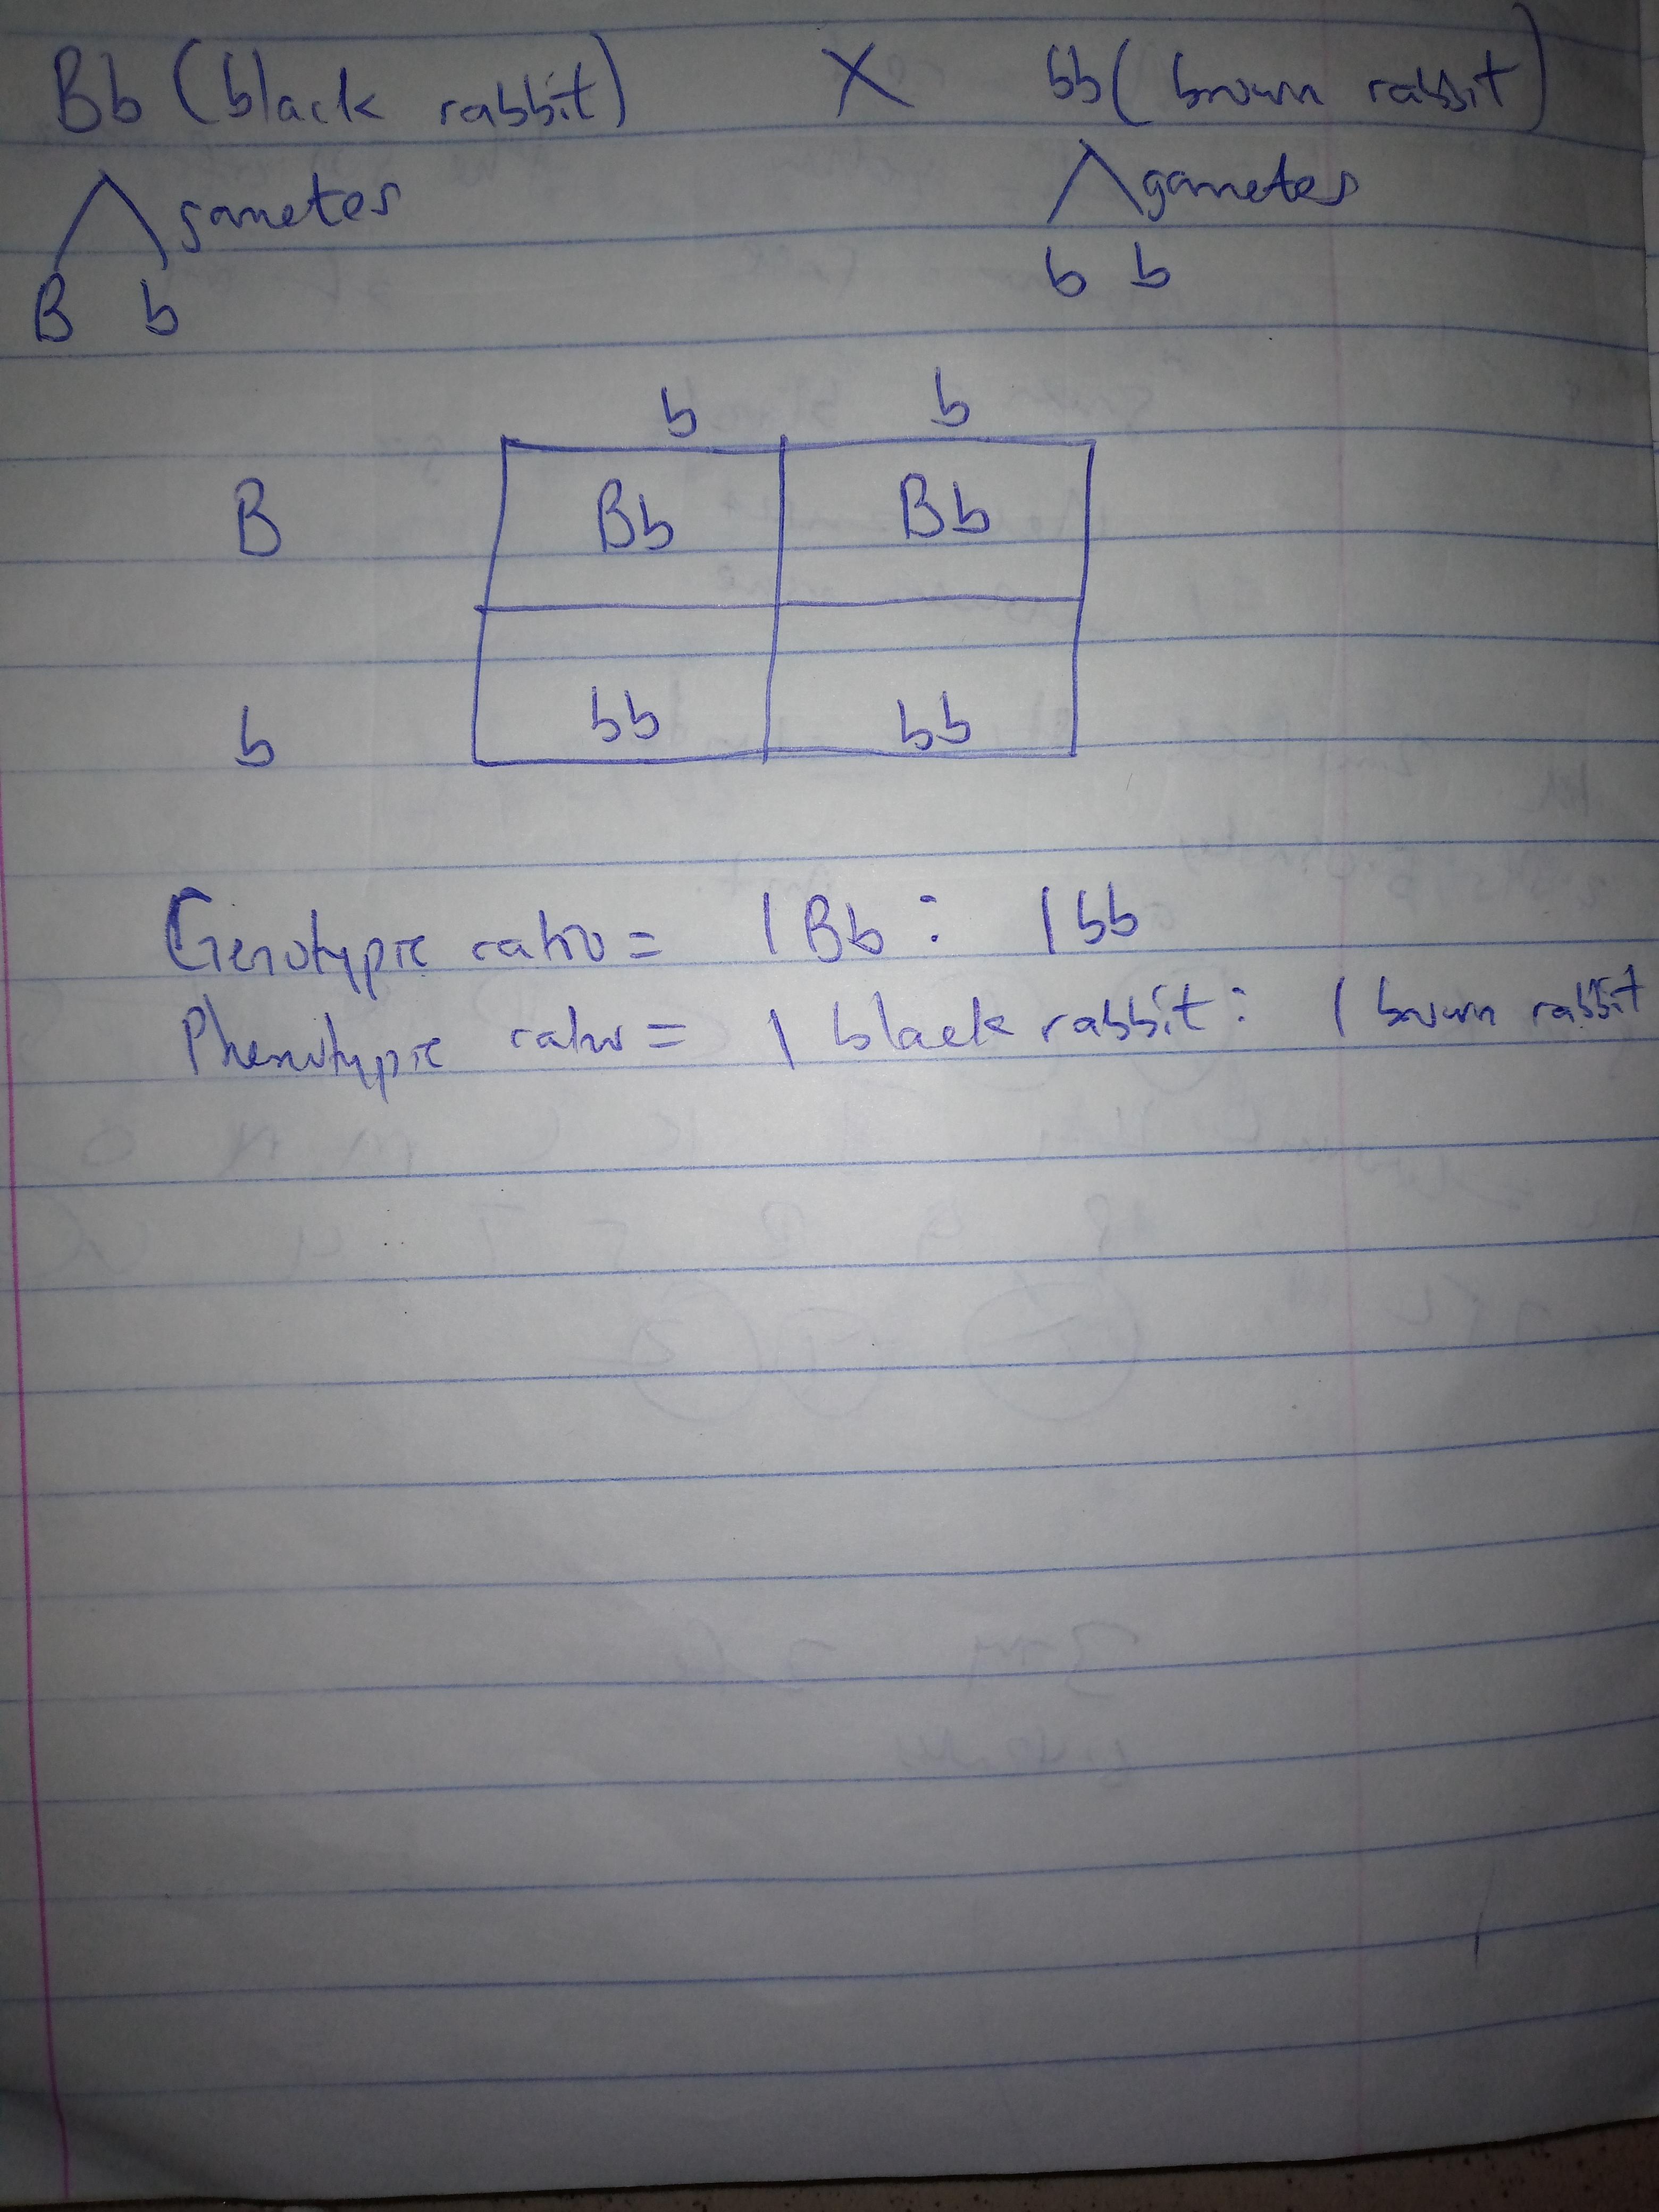 Bb (black rabbit) X bb (brown rabbit)
gametes gametes
B b b b
b b
B Bb Bb
b bb bb
Genotypic ratio = 1 Bb : 1 bb
Phenotypic ratio = 1 black rabbit : 1 brown rabbit